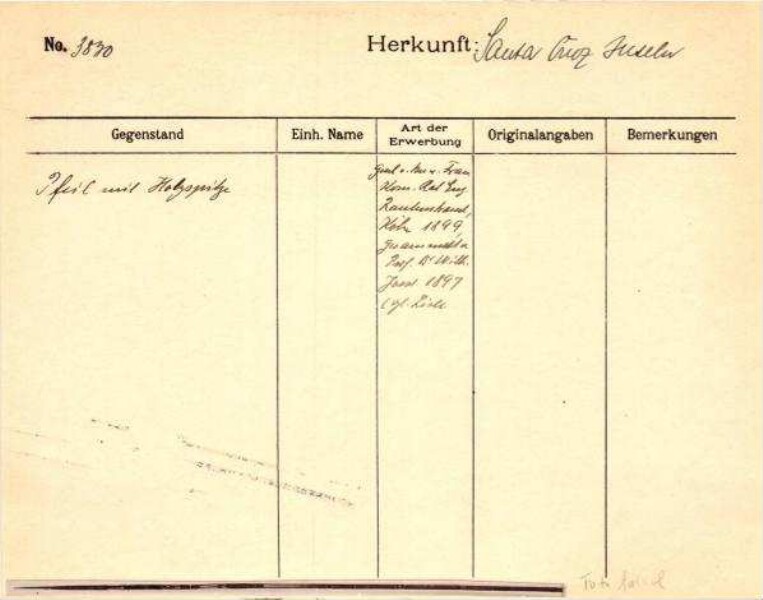 No. 3830
Herkunft: Santa Cruz Inseln
Gegenstand
Einh. Name
Art der
Erwerbung
Originalangaben
Bemerkungen
Pfeil mit Holzspitze
Frau
Kom. Rat Eug
Rautenstrauch,
Köln 1899,
gesammelt v.
Prof. Dr Wilh.
Joest 1897